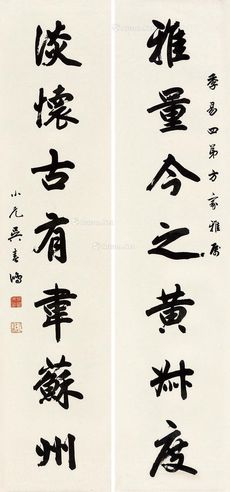 雅量今之黄叔度
季昜四弟方家雅属
淡懷古有韋蘇州
小庑吳春